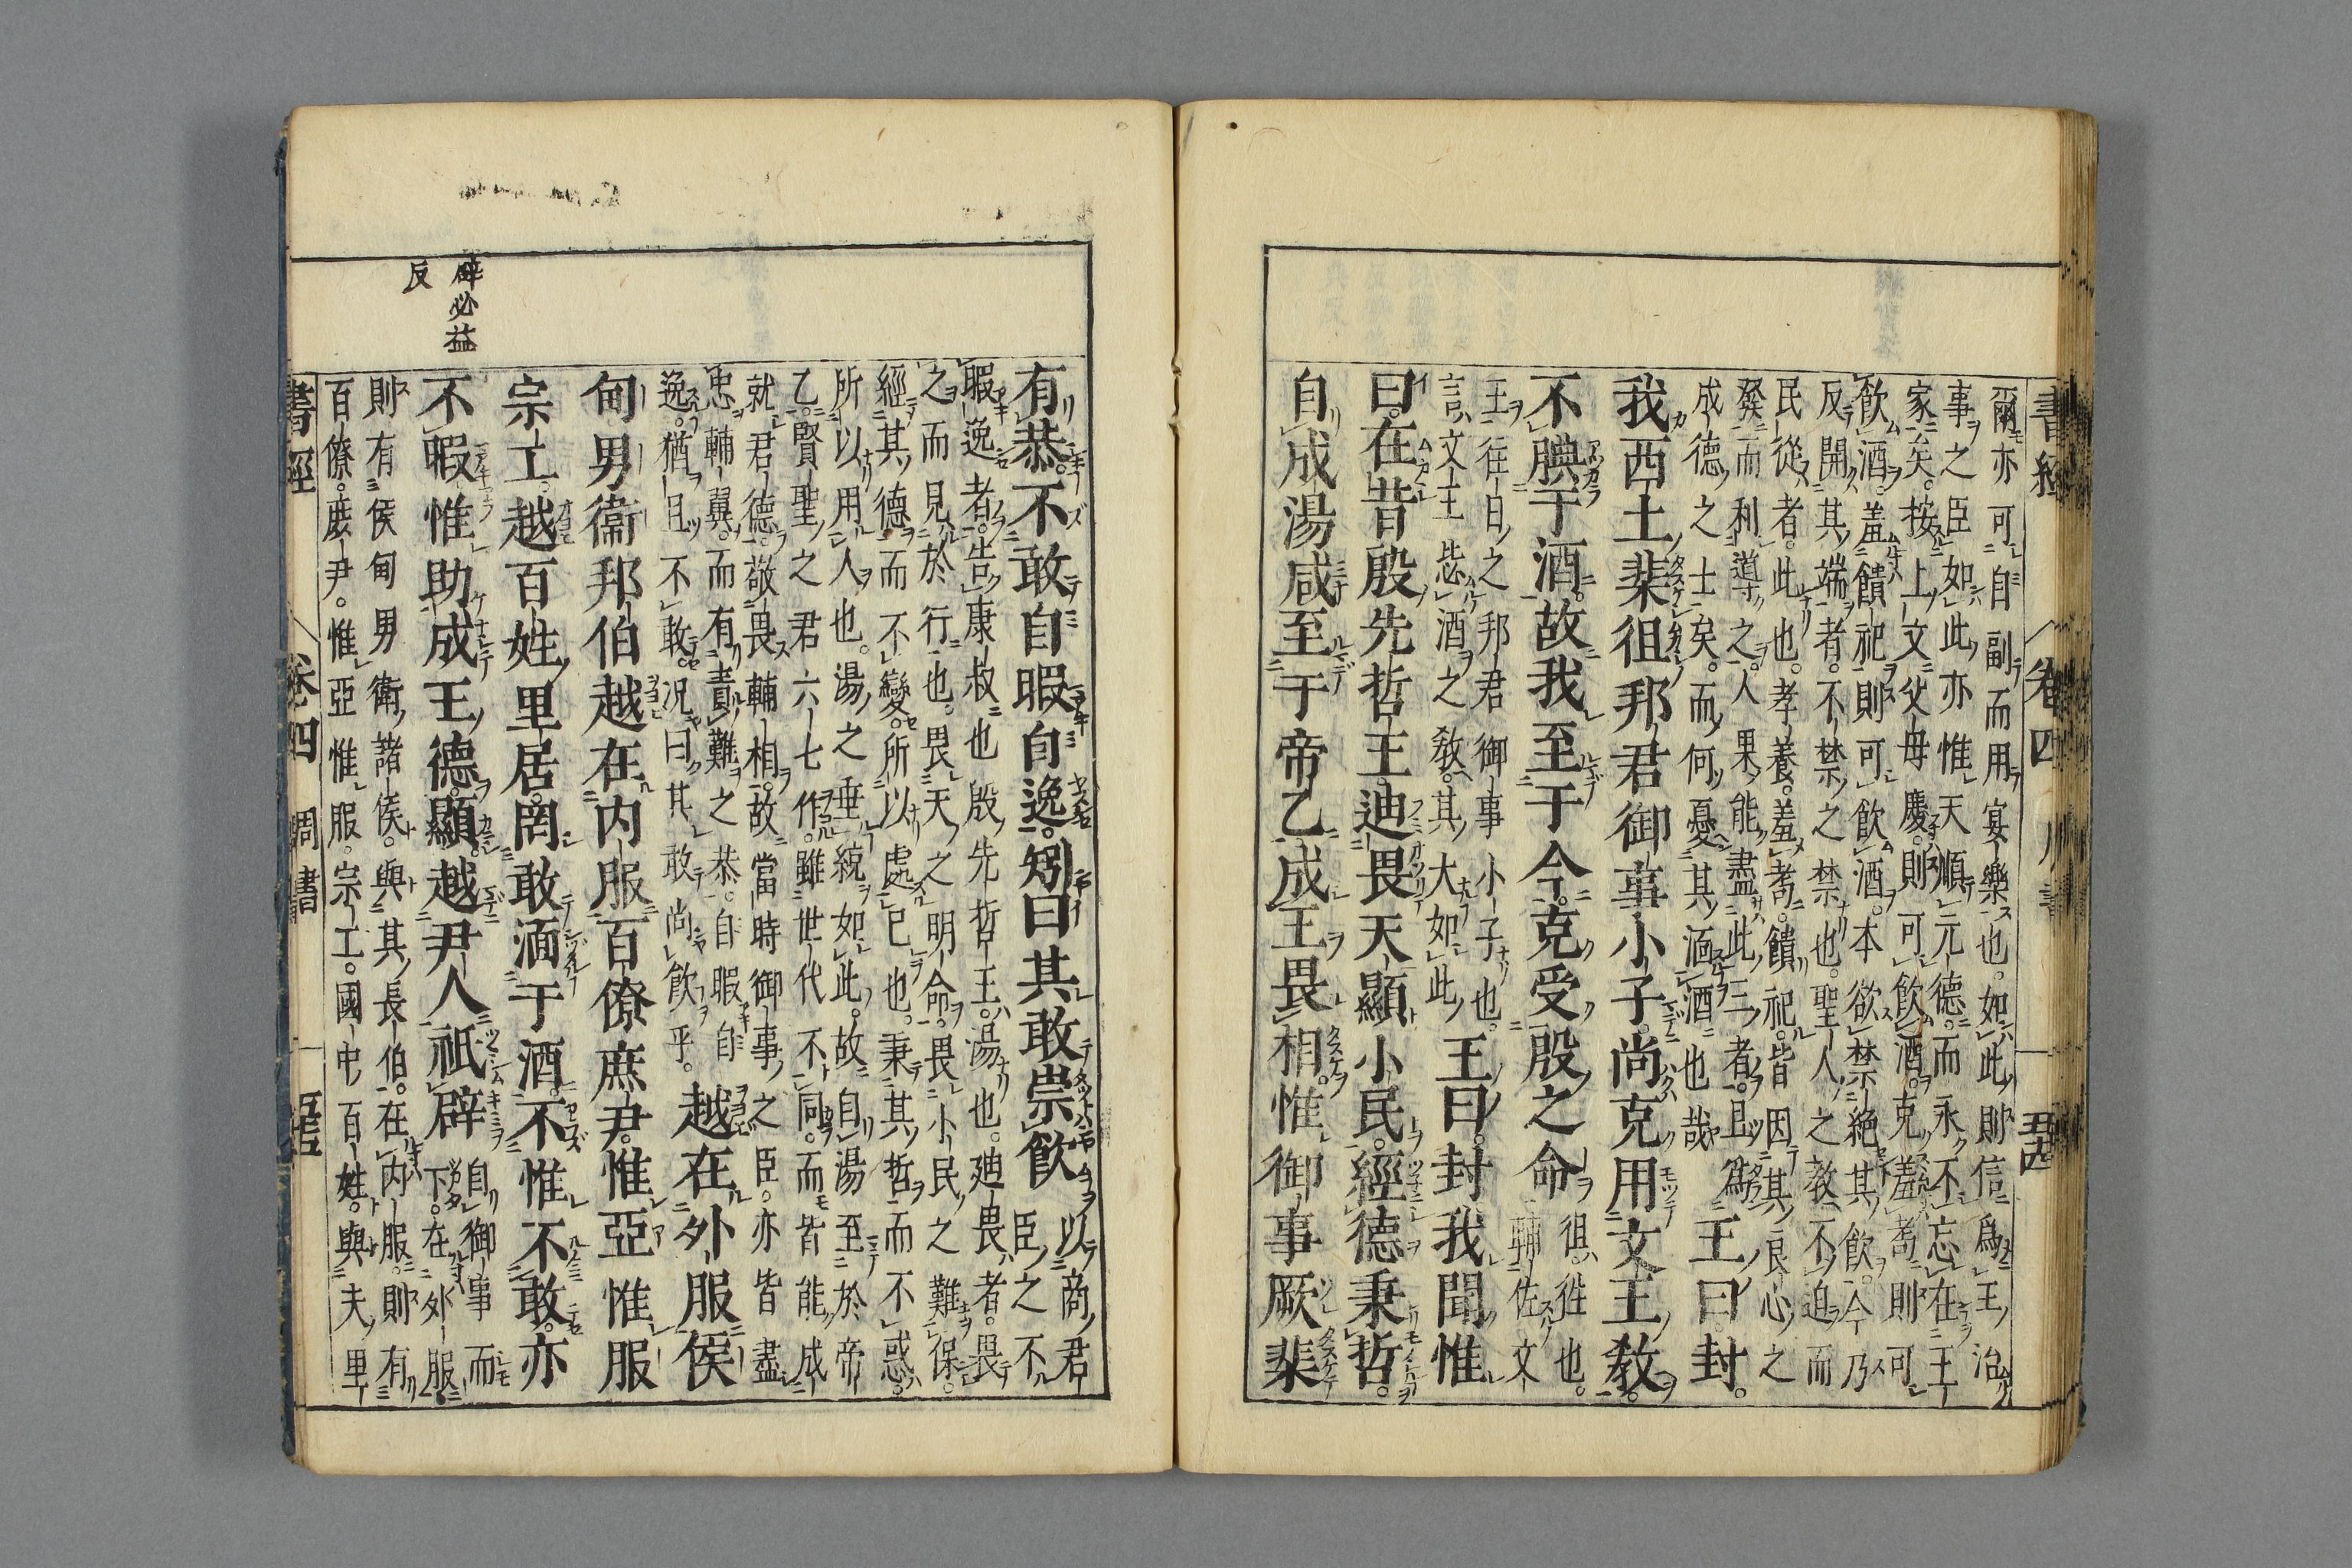 書經 卷四
爾亦可自副而用宴樂也。如此則信爲王治
事之臣如此亦惟天順元德。而永不忘在王
家矣。按上文父母慶。則可飲酒。克羞耇則可
飮酒。羞饋祀則可飮酒。本欲禁絶其飮。今乃
反開其端者。不禁之禁也。聖人之教不迫而
民從者。此也。孝養。羞耇。饋祀。皆因其良心之
發而利導之。人果能盡此三者。且爲
成德之士矣。而何憂其湎酒也哉 王曰封。
我西土棐徂邦君御事小子。尚克用文王教。
不腆于酒。故我至于今。克受殷之命 徂。徃也。
輔佐文
王往日之邦君御事小子也。
言文王毖酒之敎。其大如此 王曰。封我聞惟
曰在昔殷先哲王。迪畏天顯小民。經德秉哲。
自成湯咸至于帝乙。成王畏相。惟御事厥棐
有恭。不敢自暇自逸。矧曰其敢崇飮 以商君
臣之不
暇逸者。告康叔也 殷先哲王。湯也。廸畏者。畏
之而見於行也。畏天之明命。畏小民之難保。
經其德而不變。所以處己也。秉其哲而不惑。
所以用人也。湯之垂統如此。故自湯至於帝
乙。賢聖之君六七作。雖世代不同。而皆能成
就君德。敬畏輔相。故當時御事之臣。亦皆盡
忠輔翼。而有責難之恭。自暇自
逸。猶且不敢。况曰其敢尚飮乎。 越在外服侯
甸男衞邦伯越在内服百僚庶尹。惟亞惟服
宗工。越百姓里居。罔敢湎于酒。不惟不敢。亦
不暇惟助成王德。顯。越尹人祗辟 自御事而
下。在外服。
則有侯甸男衛諸侯。與其長伯。在内服。則有
百僚。庶尹。惟亞惟服。宗工。國中百姓。與夫里
辟必益
反
書經 卷四 周書